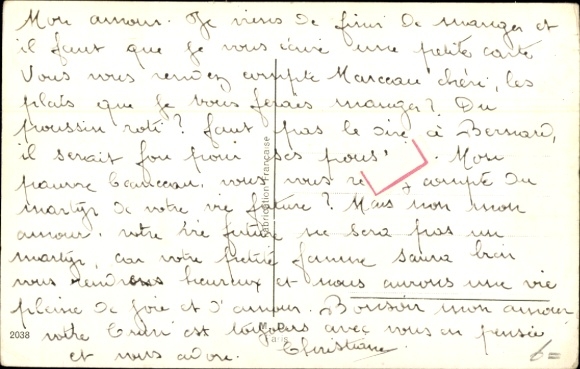 Mon amour. Je viens de finir de manger et
il faut que je vous écrive une petite carte
Vous vous rendez compte Marceau chéri, les
plats que je vous ferais manger? Du
poussin roti? faut pas le dire à Bernard,
il serait fou pour ses pous'. Mon
pauvre Marceau, vous vous re compte du
martyr de votre vie future? Mais non mon
amour. votre vie future ne sera pas un
martyr, car votre petite femme saura bien
vous rendre heureux et nous aurons une vie
pleine de joie et d'amour. Bonsoir mon amour
votre est toujours avec vous en pensée
et vous adore. Christiane.
Fabrication Française
Paris
2038
6=